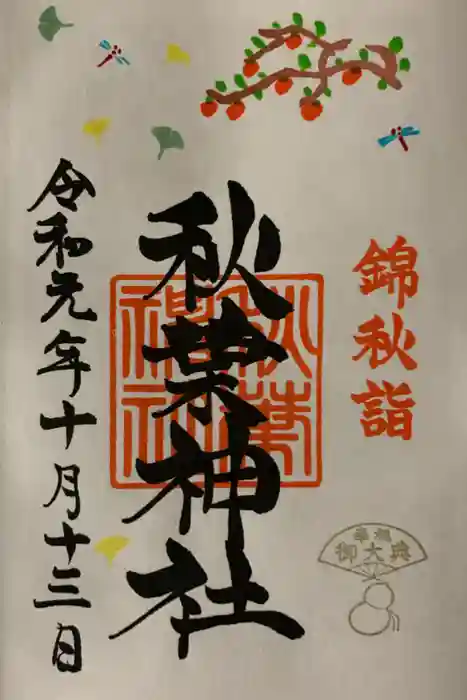 錦秋詣
奉祝
御大典
秋葉神社
秋葉
神社
令和元年十月十三日